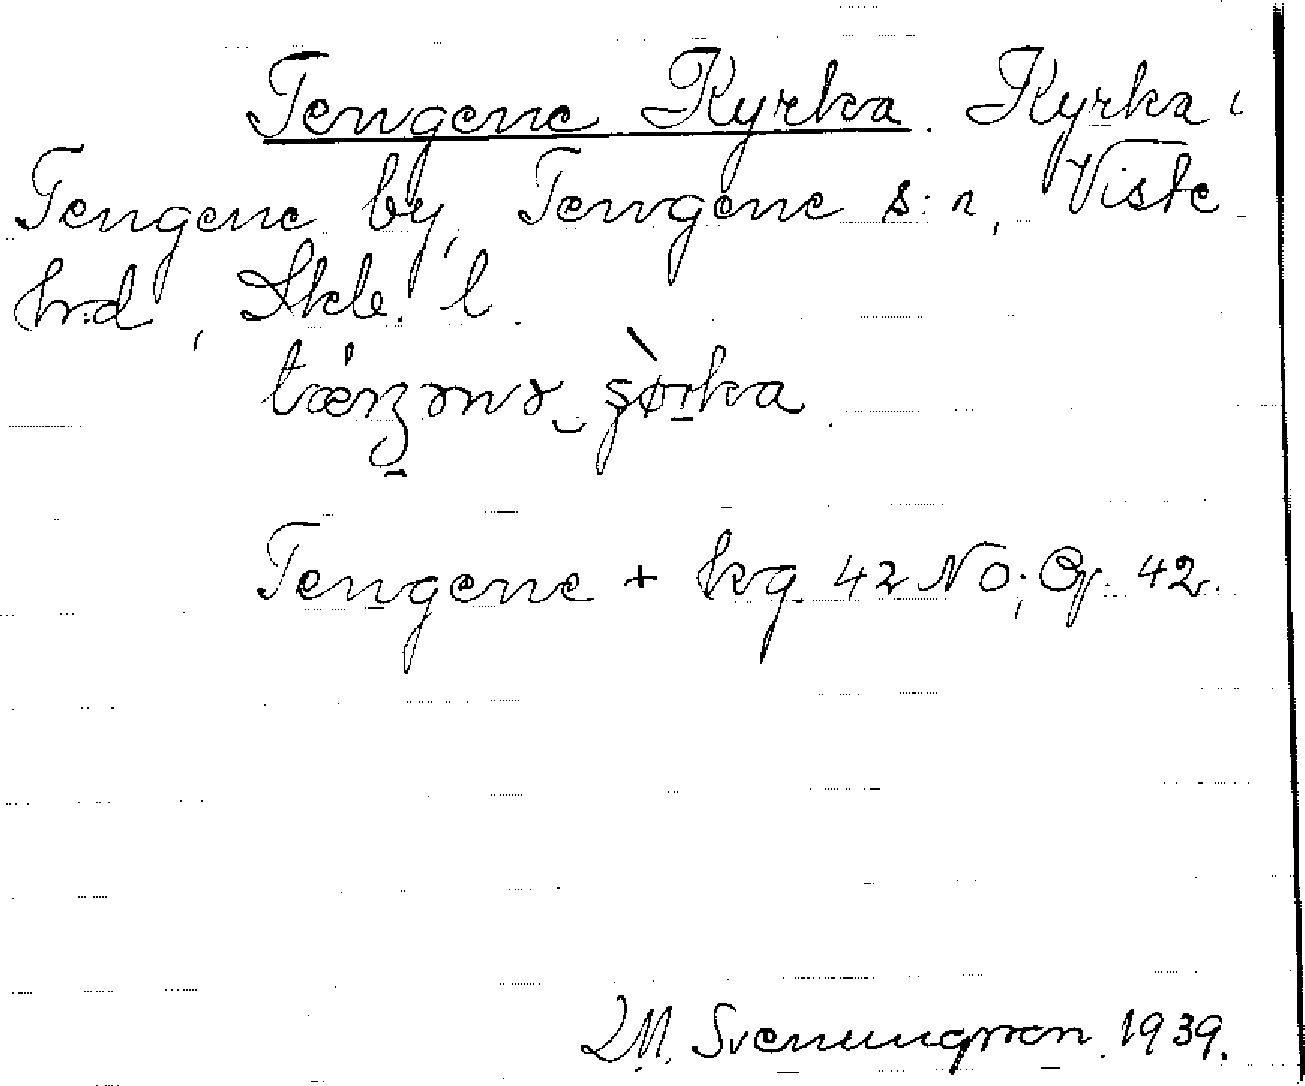 Tengene Kyrka. Kyrka i
Tengene by, Tengene s:n, Viste
h:d, Skb. l.
Tengene + kg. 42 NO; Gg. 42.
M. Svenungsson. 1939.